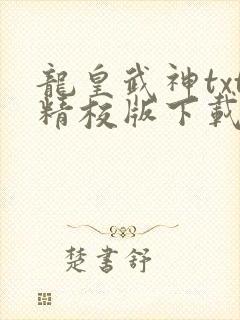 龍皇武神txt
精校版下載
楚書舒